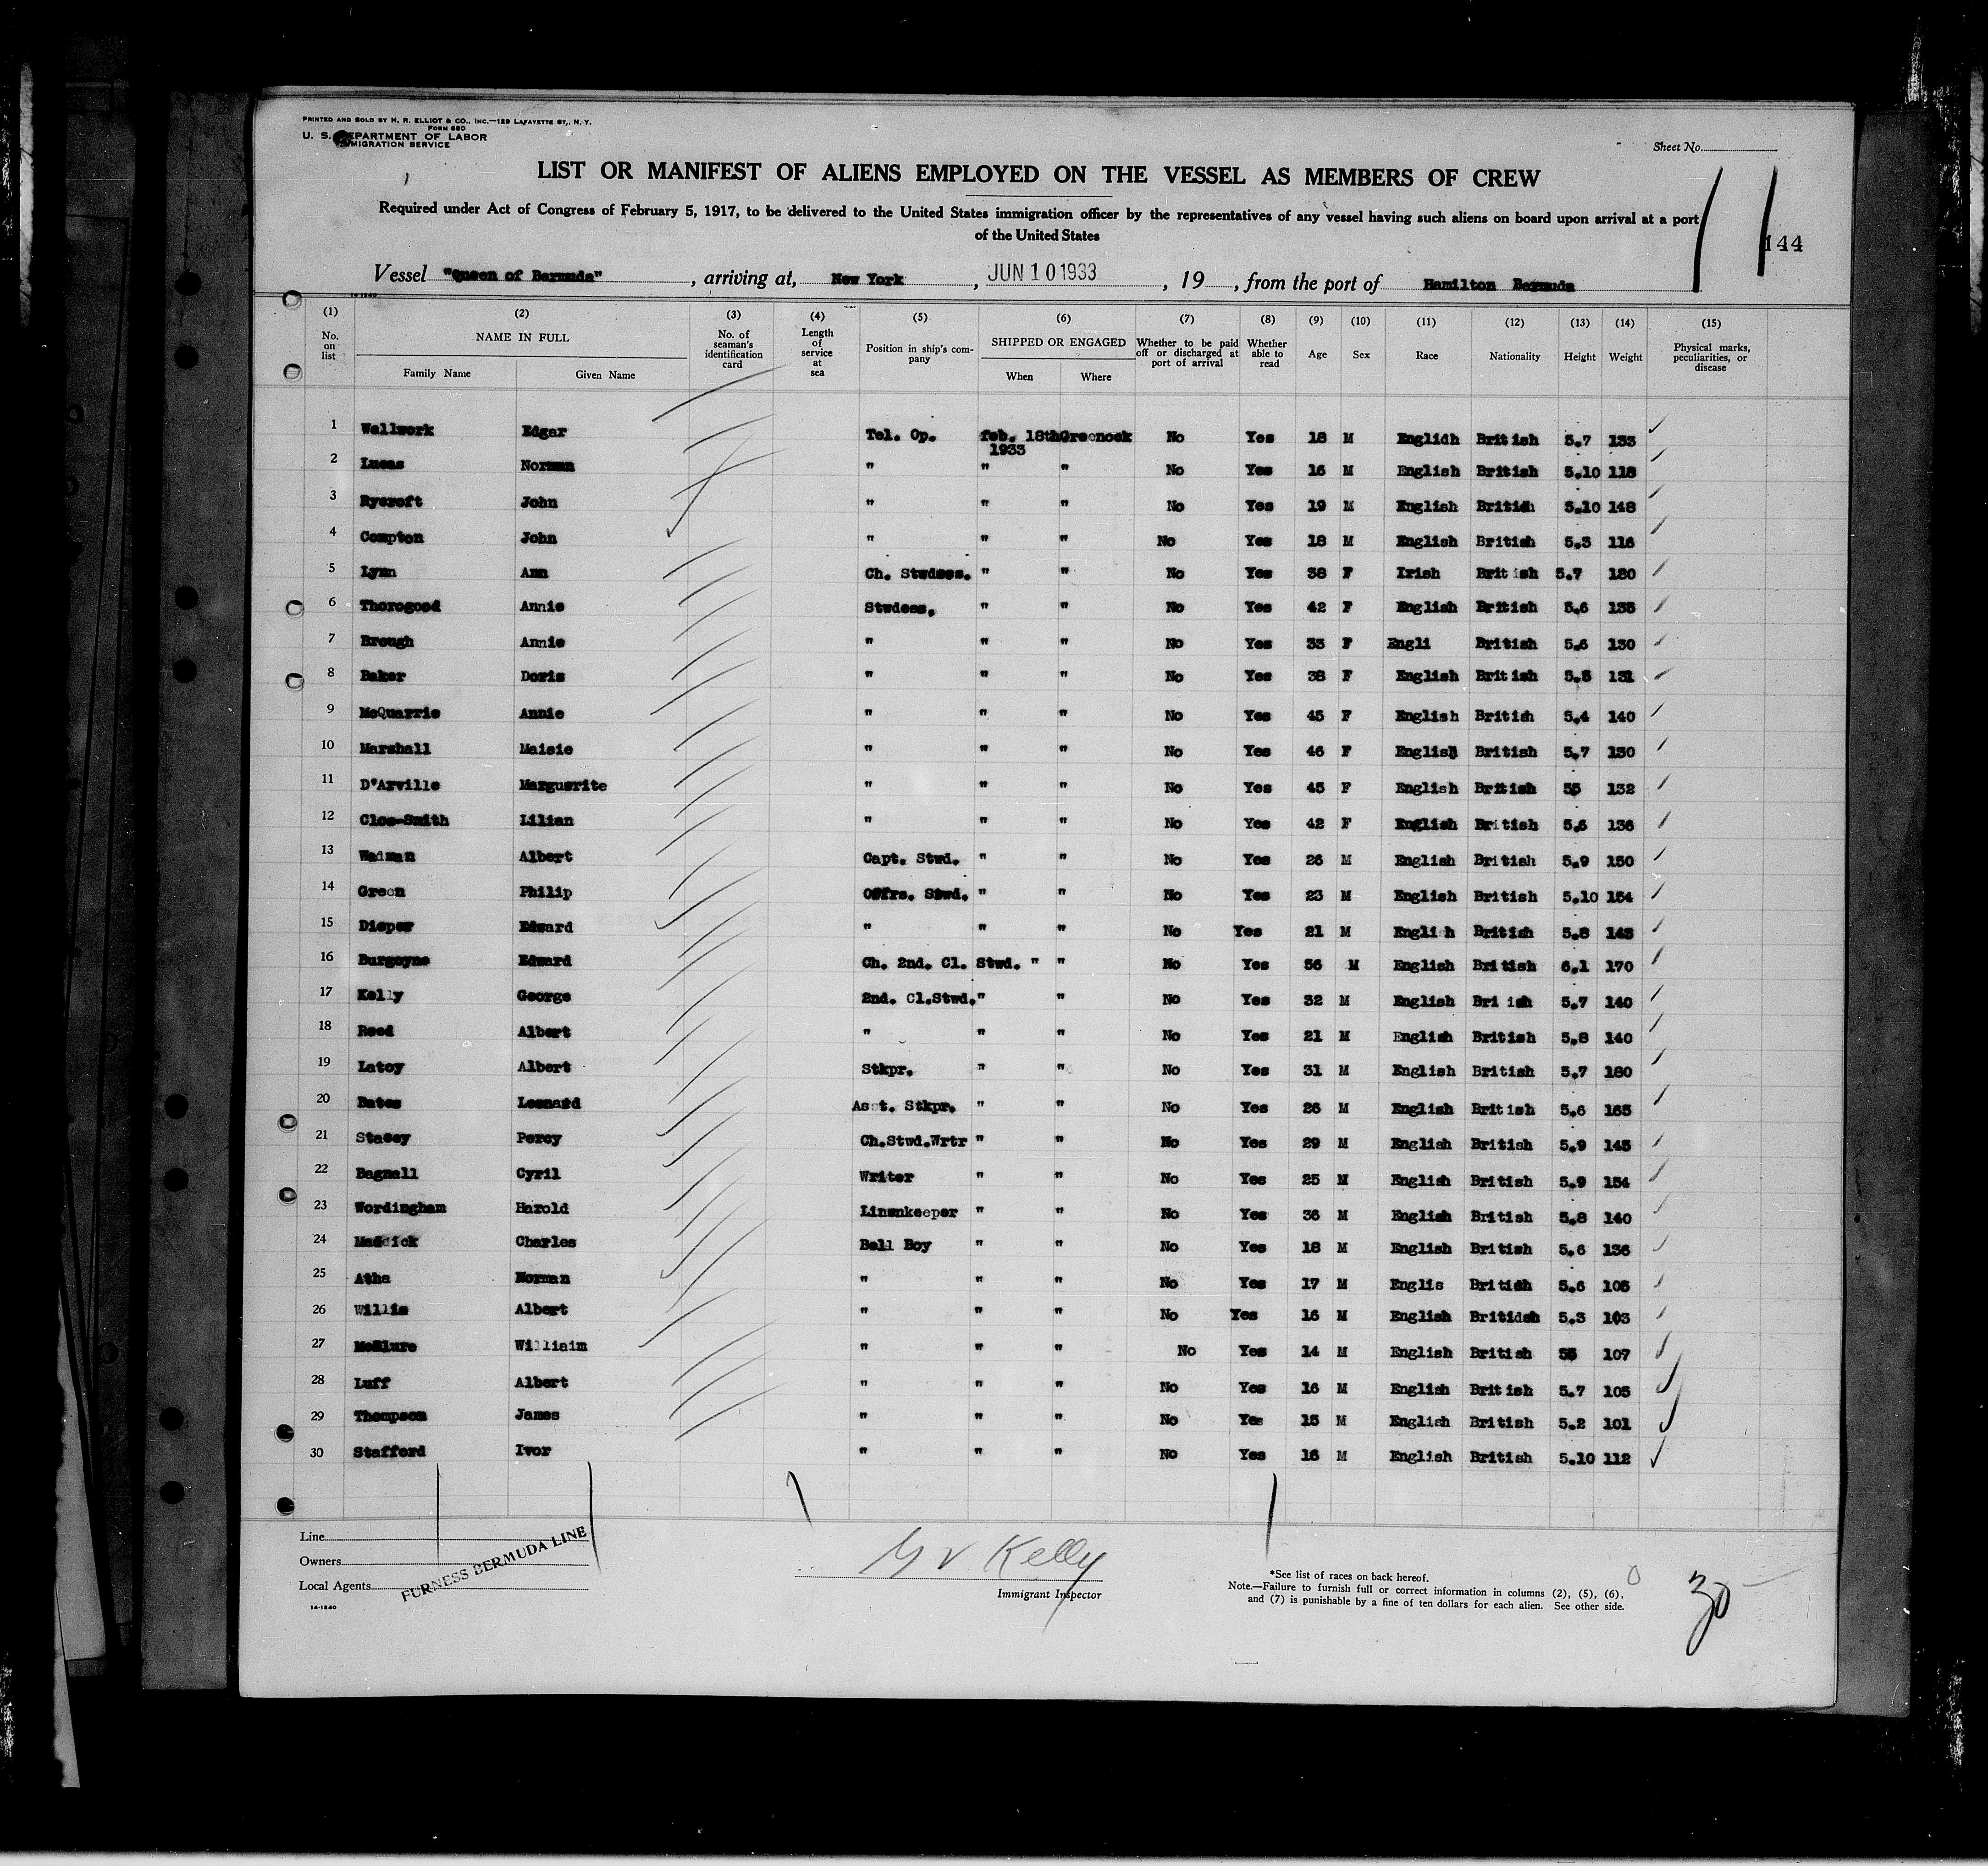 PRINTED AND SOLD BY H. R. ELLIOT & CO., INC.—129 LAFAYETTE ST., N. Y.
FORM 680
U. S. DEPARTMENT OF LABOR
IMMIGRATION SERVICE
Sheet No.
LIST OR MANIFEST OF ALIENS EMPLOYED ON THE VESSEL AS MEMBERS OF CREW
Required under Act of Congress of February 5, 1917, to be delivered to the United States immigration officer by the representatives of any vessel having such aliens on board upon arrival at a port
of the United States
144
Vessel "Queen of Bermuda", arriving at, New York, JUN 10 1933, 19 , from the port of Hamilton Bermuda
14-1240
(1) (2) (3) (4) (5) (6) (7) (8) (9) (10) (11) (12) (13) (14) (15)
No. on list NAME IN FULL Family Name Given Name No. of seaman's identification card Length of service at sea Position in ship's company SHIPPED OR ENGAGED When Where Whether to be paid off or discharged at port of arrival Whether able to read Age Sex Race Nationality Height Weight Physical marks, peculiarities, or disease
1 Wallwork Edgar Tel. Op. feb. 18th Greenock No Yes 18 M Englidh British 5.7 133
1933
2 Lucas Norman " " " No Yes 16 M English British 5.10 118
3 Rycroft John " " " No Yes 19 M English British 5.10 148
4 Compton John " " " No Yes 18 M English British 5.3 116
5 Lynn Ann Ch. Stwdses. " " No Yes 38 F Irish British 5.7 180
6 Thorogood Annie Stwdess. " " No Yes 42 F English British 5.6 135
7 Brough Annie " " " No Yes 33 F Engli British 5.6 130
8 Baker Doris " " " No Yes 38 F English British 5.5 131
9 McQuarrie Annie " " " No Yes 45 F English British 5.4 140
10 Marshall Maisie " " " No Yes 46 F English British 5.7 130
11 D'Arville Marguerite " " " No Yes 45 F English British 55 132
12 Cloe-Smith Lilian " " " No Yes 42 F English British 5.6 136
13 Wadman Albert Capt. Stwd. " " No Yes 26 M English British 5.9 150
14 Green Philip Offrs. Stwd. " " No Yes 23 M English British 5.10 154
15 Dieper Edward " " " No Yes 21 M Engli h British 5.8 143
16 Burgoyne Edward Ch. 2nd. Cl. Stwd. " " No Yes 56 M English British 6.1 170
17 Kelly George 2nd. Cl.Stwd. " " No Yes 32 M English Bri ish 5.7 140
18 Reed Albert " " " No Yes 21 M English British 5.8 140
19 Latoy Albert Stkpr. " " No Yes 31 M English British 5.7 180
20 Bates Leonard Asst. Stkpr. " " No Yes 26 M English British 5.6 165
21 Stacey Percy Ch.Stwd.Wrtr " " No Yes 29 M English British 5.9 145
22 Bagnall Cyril Writer " " No Yes 25 M English British 5.9 154
23 Wordingham Harold Linenkeeper " " No Yes 36 M English British 5.8 140
24 Maddick Charles Bell Boy " " No Yes 18 M English British 5.6 136
25 Atha Norman " " " No Yes 17 M Englis British 5.6 105
26 Willis Albert " " " No Yes 16 M English Britidsh 5.3 103
27 McClure Williaim " " " No Yes 14 M English British 55 107
28 Luff Albert " " " No Yes 16 M English British 5.7 105
29 Thompson James " " " No Yes 15 M English British 5.2 101
30 Stafford Ivor " " " No Yes 16 M English British 5.10 112
Line
Owners
Local Agents
FURNESS BERMUDA LINE
14-1240
Kelly
Immigrant Inspector
*See list of races on back hereof.
Note.—Failure to furnish full or correct information in columns (2), (5), (6),
and (7) is punishable by a fine of ten dollars for each alien. See other side.
30